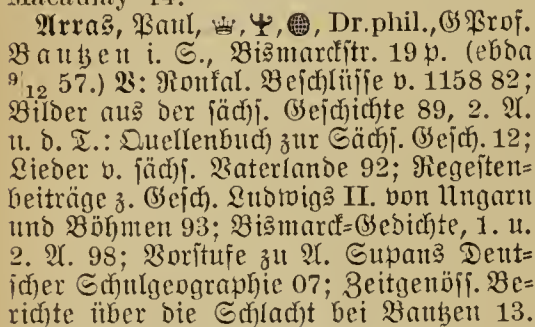 Macaulay 14.
Arras, Paul, Dr. phil., GProf.
Bautzen i. S., Bismarckstr. 19 p. (ebda
9/12 57.) V: Ronkal. Beschlüsse v. 1158 82;
Bilder aus der sächs. Geschichte 89, 2. A.
u. d. T.: Quellenbuch zur Sächs. Gesch. 12;
Lieder v. sächs. Vaterlande 92; Regesten=
beiträge z. Gesch. Ludwigs II. von Ungarn
und Böhmen 93; Bismarck=Gedichte, 1. u.
2. A. 98; Vorstufe zu A. Supans Deut=
scher Schulgeographie 07; Zeitgenöss. Be=
richte über die Schlacht bei Bautzen 13.